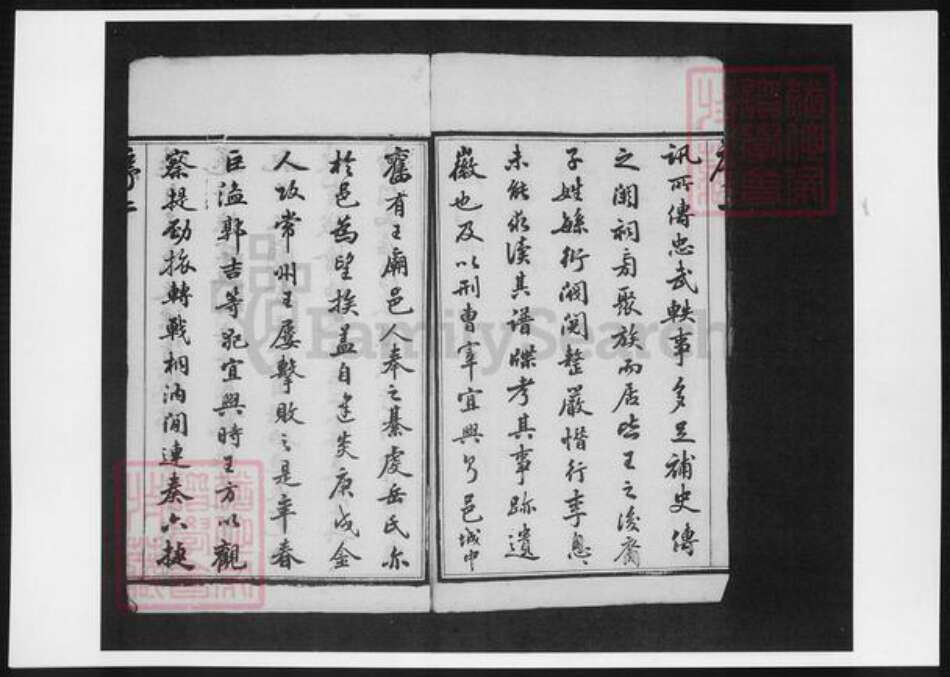 訊所傳忠武軼事多足補史傳
之闕祠旁聚族而居皆王之後裔
子姓繇衍閥閱整嚴惜行李匆
未能求讀其譜牒考其事跡遺
徽也及以刑曹宰宜興兮邑城中
舊有王廟邑人奉之綦虔岳氏亦
於邑為望族蓋自建炎庚戌金
人攻常州王屢擊敗之是年春
巨盜郭吉等犯宜興時王方以觀
察提勁旅轉戰桐汭間連奏六捷
序二
FamilySearch